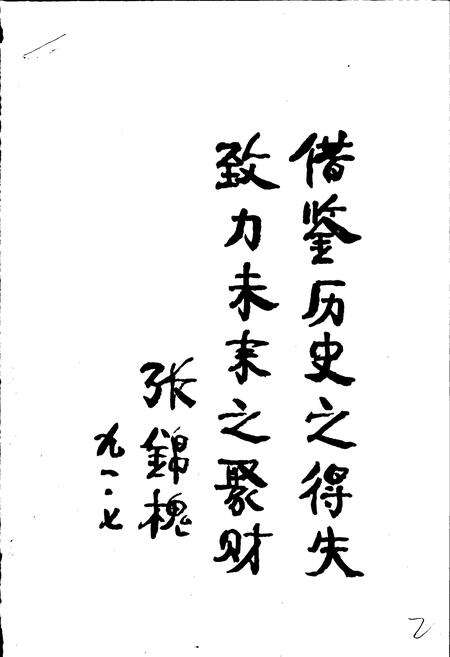 借鉴历史之得失
致力未来之聚财
张錦槐
九一·七
2